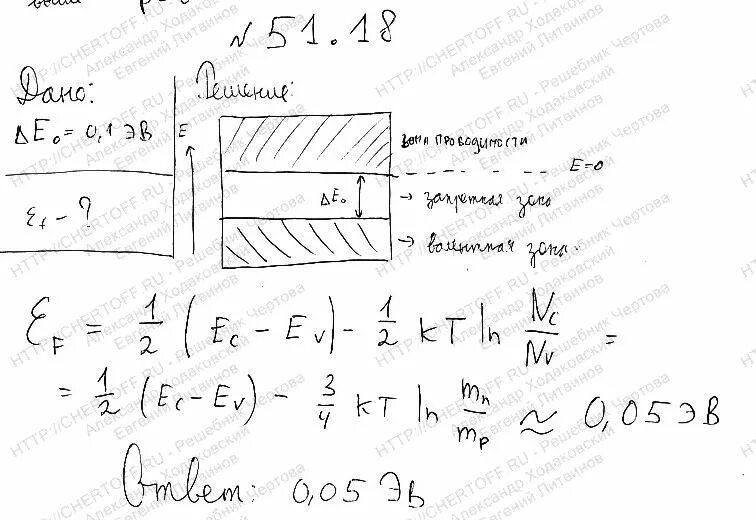 № 51.18
Дано:
Решение:
ΔE₀ = 0,1 эВ
E
зона проводимости
E=0
ΔE₀
→ запретная зона
Ef - ?
→ валентная зона
Ɛ_F = 1/2 (Ec - Ev) - 1/2 kT ln Nc/Nv =
= 1/2 (Ec - Ev) - 3/4 kT ln mn/mp ≈ 0,05 эВ
Ответ: 0,05 эВ
HTTP://CHERTOFF.RU - Решебник Чертова
Александр Ходаковский
Евгений Литвинов